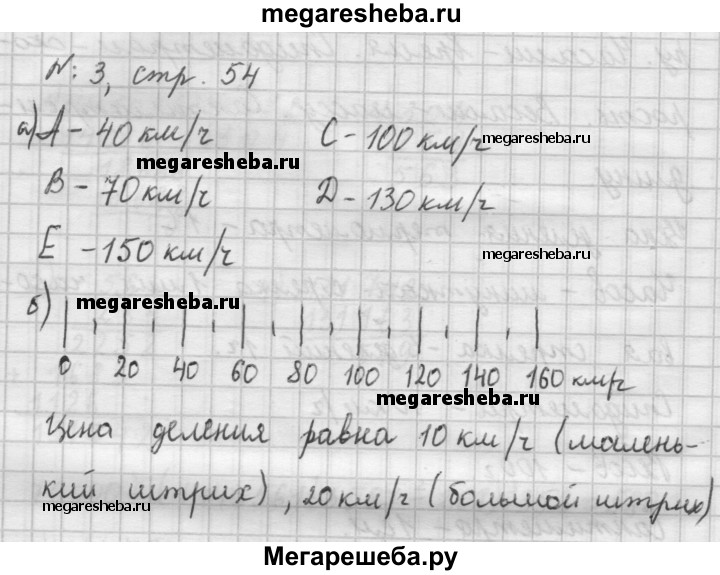 megaresheba.ru
№ 3, стр. 54
а) A - 40 км/ч C - 100 км/ч
megaresheba.ru
megaresheba.ru
B - 70 км/ч D - 130 км/ч
E - 150 км/ч
megaresheba.ru
б)
megaresheba.ru
0 20 40 60 80 100 120 140 160 км/ч
megaresheba.ru
Цена деления равна 10 км/ч (малень-
кий штрих), 20 км/ч (большой штрих)
megaresheba.ru
megaresheba.ru
Мегарешеба.ру